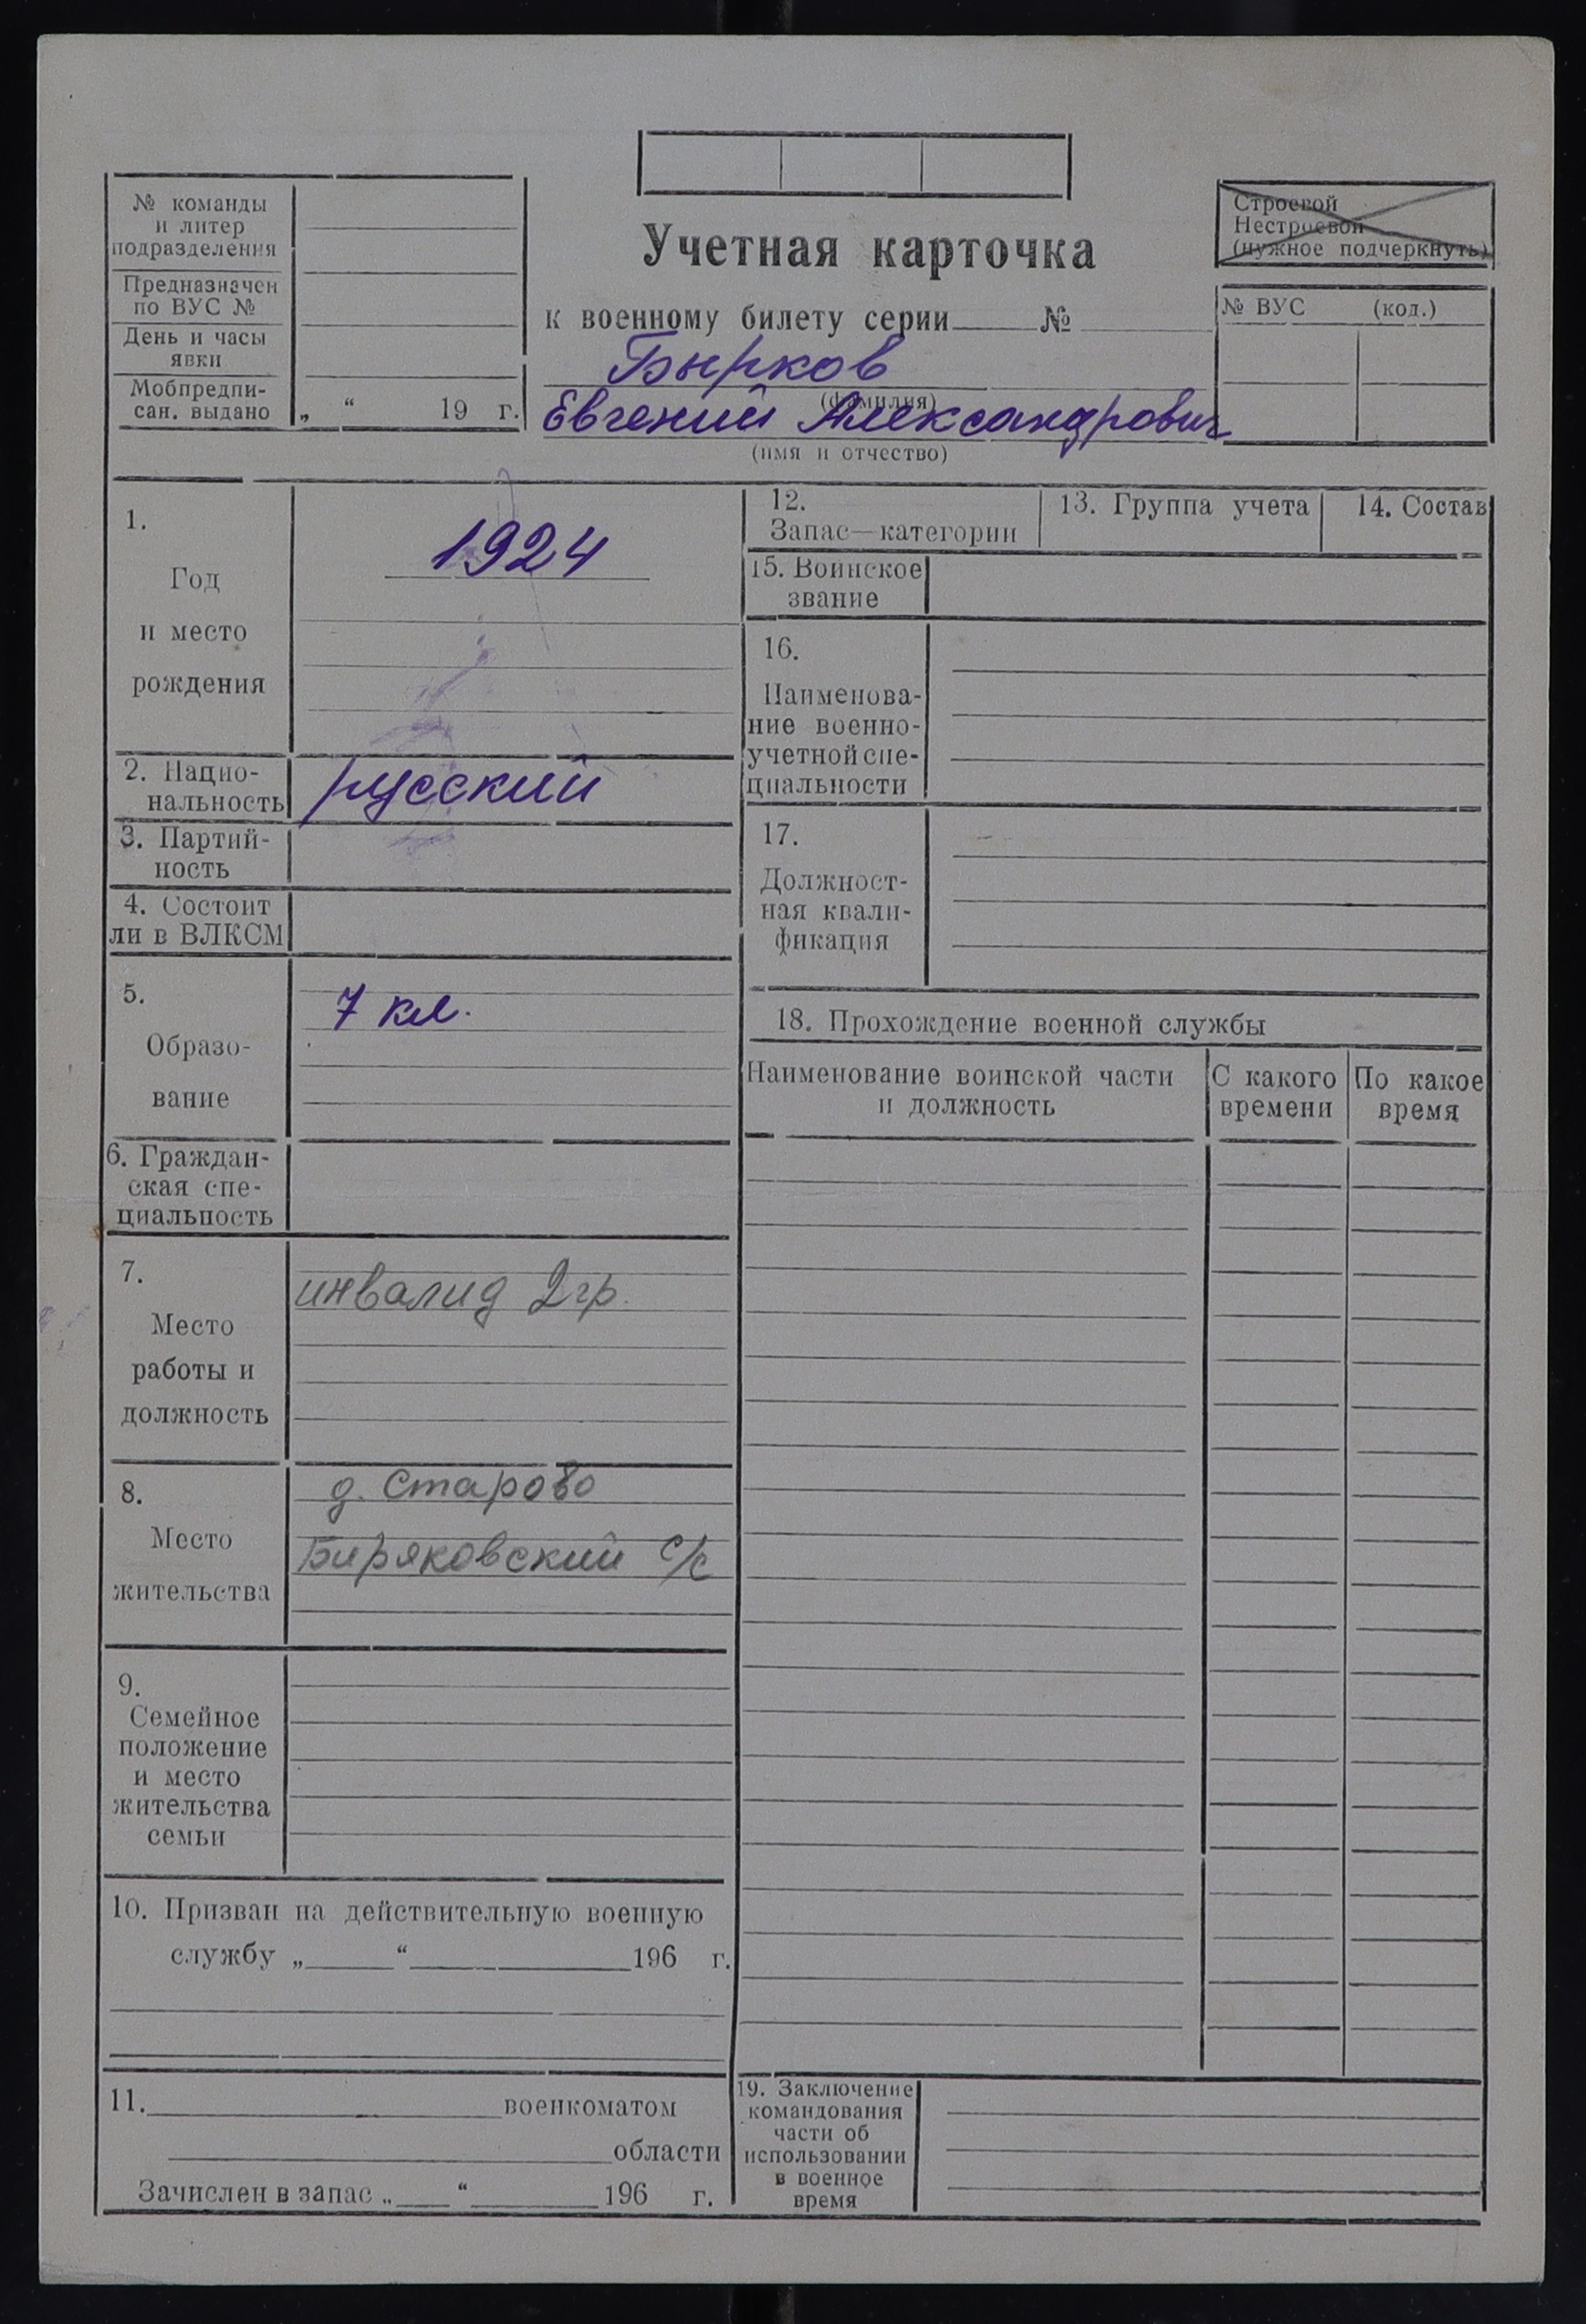 № команды
и литер
подразделения
Предназначен
по ВУС №
День и часы
явки
Мобпредпи-
сан. выдано
„ “ 19 г.
Учетная карточка
к военному билету серии №
Бырков
(фамилия)
Евгений Александрович
(имя и отчество)
Строевой
Нестроевой
(нужное подчеркнуть)
№ ВУС (код.)
1.
Год
и место
рождения
1924
2. Нацио-
нальность
русский
3. Партий-
ность
4. Состоит
ли в ВЛКСМ
5.
Образо-
вание
7 кл.
6. Граждан-
ская спе-
циальность
7.
Место
работы и
должность
инвалид 2 гр.
8.
Место
жительства
д. Старово
Биряковский с/с
9.
Семейное
положение
и место
жительства
семьи
10. Призван на действительную военную
службу „ “ 196 г.
11. военкоматом
области
Зачислен в запас „ “ 196 г.
12.
Запас—категории
13. Группа учета
14. Состав
15. Воинское
звание
16.
Наименова-
ние военно-
учетной спе-
циальности
17.
Должност-
ная квали-
фикация
18. Прохождение военной службы
Наименование воинской части
и должность
С какого
времени
По какое
время
19. Заключение
командования
части об
использовании
в военное
время